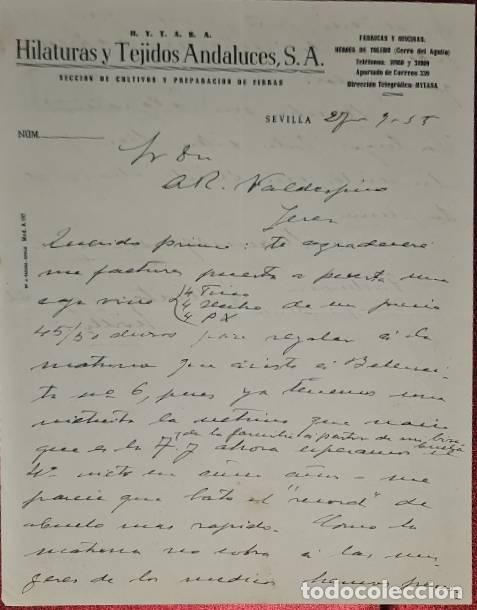 H. Y. T. A. S. A.
Hilaturas y Tejidos Andaluces, S. A.
SECCION DE CULTIVOS Y PREPARACION DE FIBRAS
FABRICAS Y OFICINAS:
HEROES DE TOLEDO (Cerro del Aguila)
Teléfonos: 31960 y 31909
Apartado de Correos 339
Dirección Telegráfica: HYTASA
SEVILLA 9-55
NÚM.
Sr Dn
A R. Valdespino
Jerez
Querido primo: te agradeceré
me factures puerta a puerta una
caja vino 4 Tinto
4 de un precio
4 PX
45/50 duros para regalar á la
matrona que asistió á
ta nº 6, pues ya tenemos una
nietecita la última que
que es la 7ª y ahora esperamos
(de la familia a partir de mi
4º nieto en cinco años - me
parece que bato el "record" de
abuelo mas rapido. Como la
matrona no cobra á las mu-
jeres de los medicos hemos
todocoleccion.net